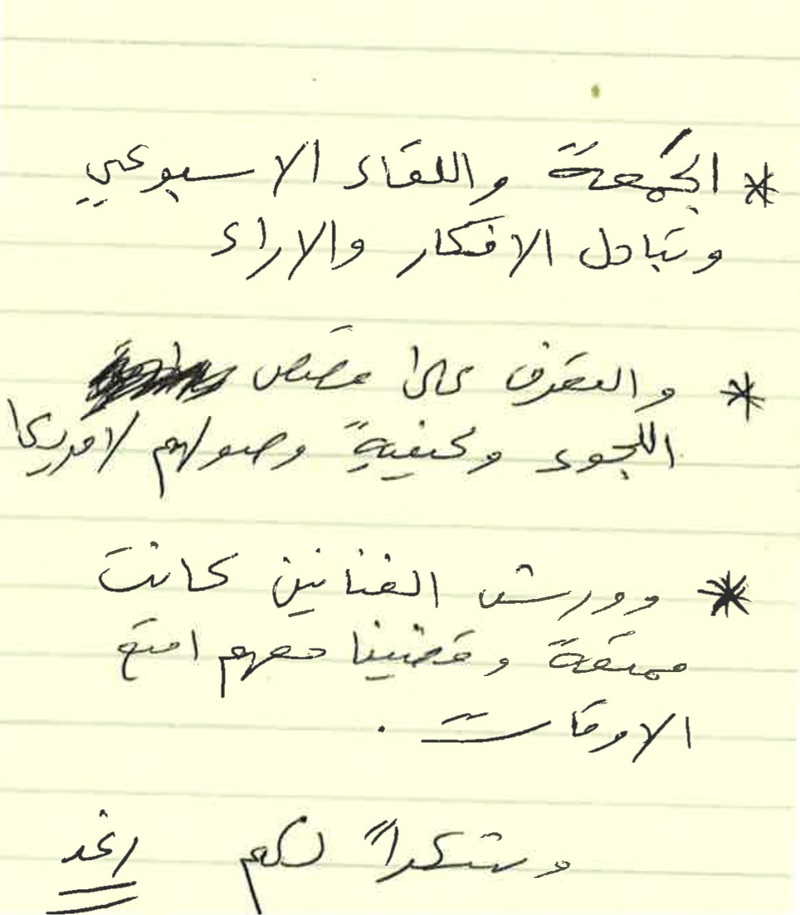 * الجمعة واللقاء الاسبوعي
وتبادل الافكار والاراء
* والتعرف على قصص
اللجوء وكيفية وصولهم لامريكا
* وورش الفنانين كانت
ممتعة وقضينا معهم امتع
الاوقات .
وشكراً لكم رغد